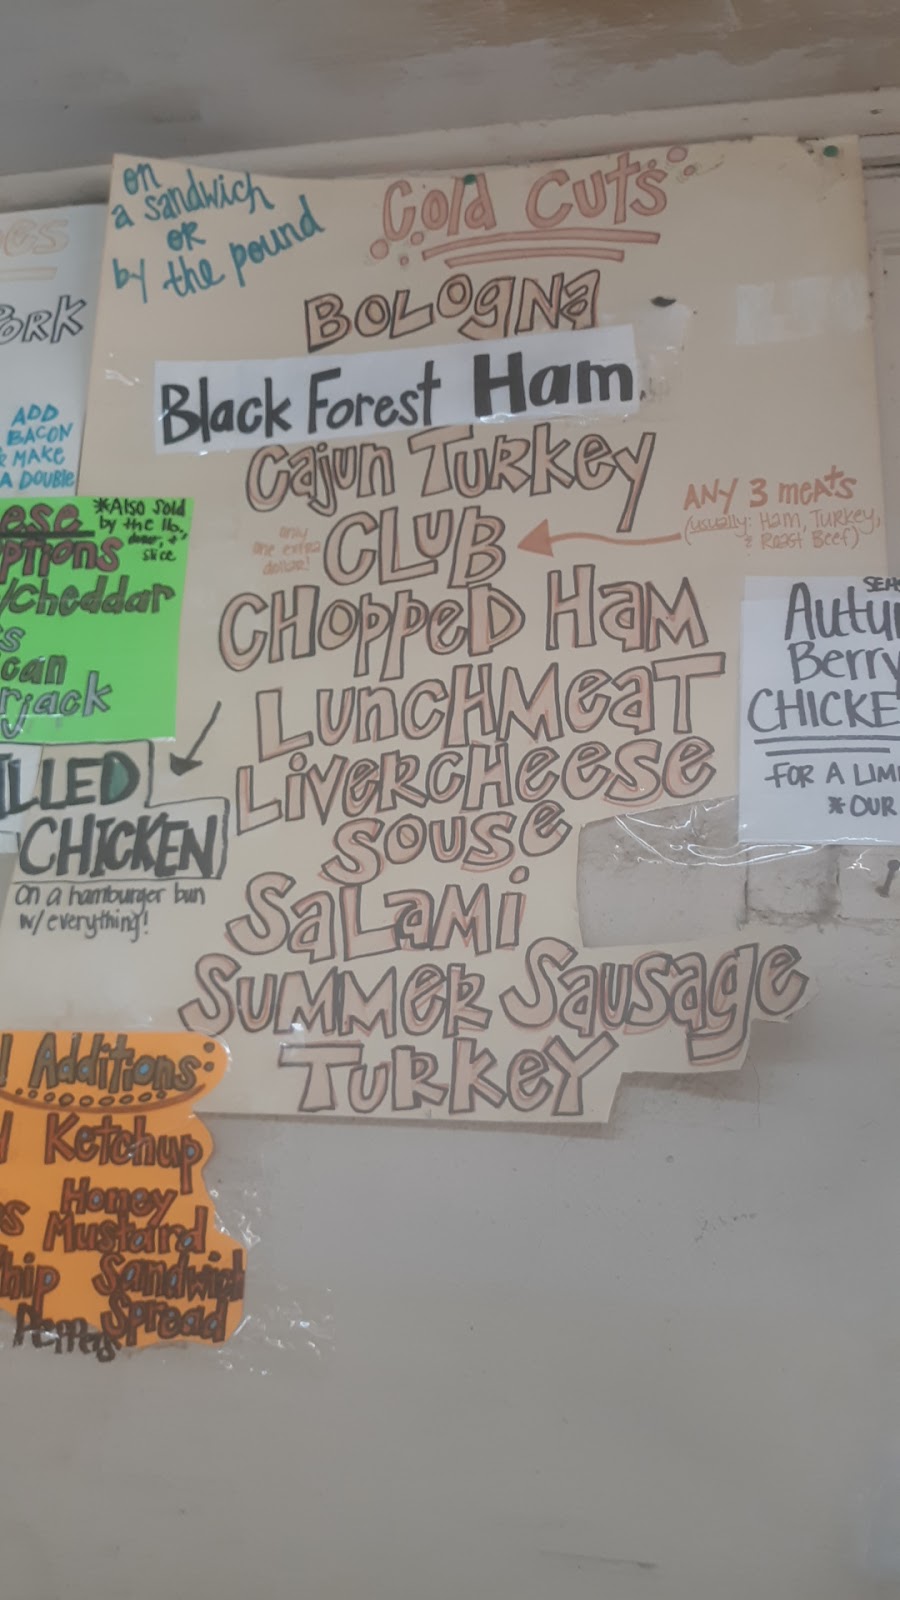 on
a sandwich
OR
by the pound
Cold Cuts
Bologna
Black Forest Ham
Cajun Turkey
only
one extra
dollar!
Club
ANY 3 meats
(usually: Ham, Turkey,
& Roast Beef)
Chopped Ham
Lunchmeat
Livercheese
Souse
Salami
Summer Sausage
Turkey
PORK
ADD
BACON
MAKE
A DOUBLE
*Also sold
by the lb.
slice
w/Cheddar
CHICKEN
on a hamburger bun
w/ everything!
Additions:
Ketchup
Honey
Mustard
Sandwich
Spread
Peppers
Berry
FOR A
* OUR